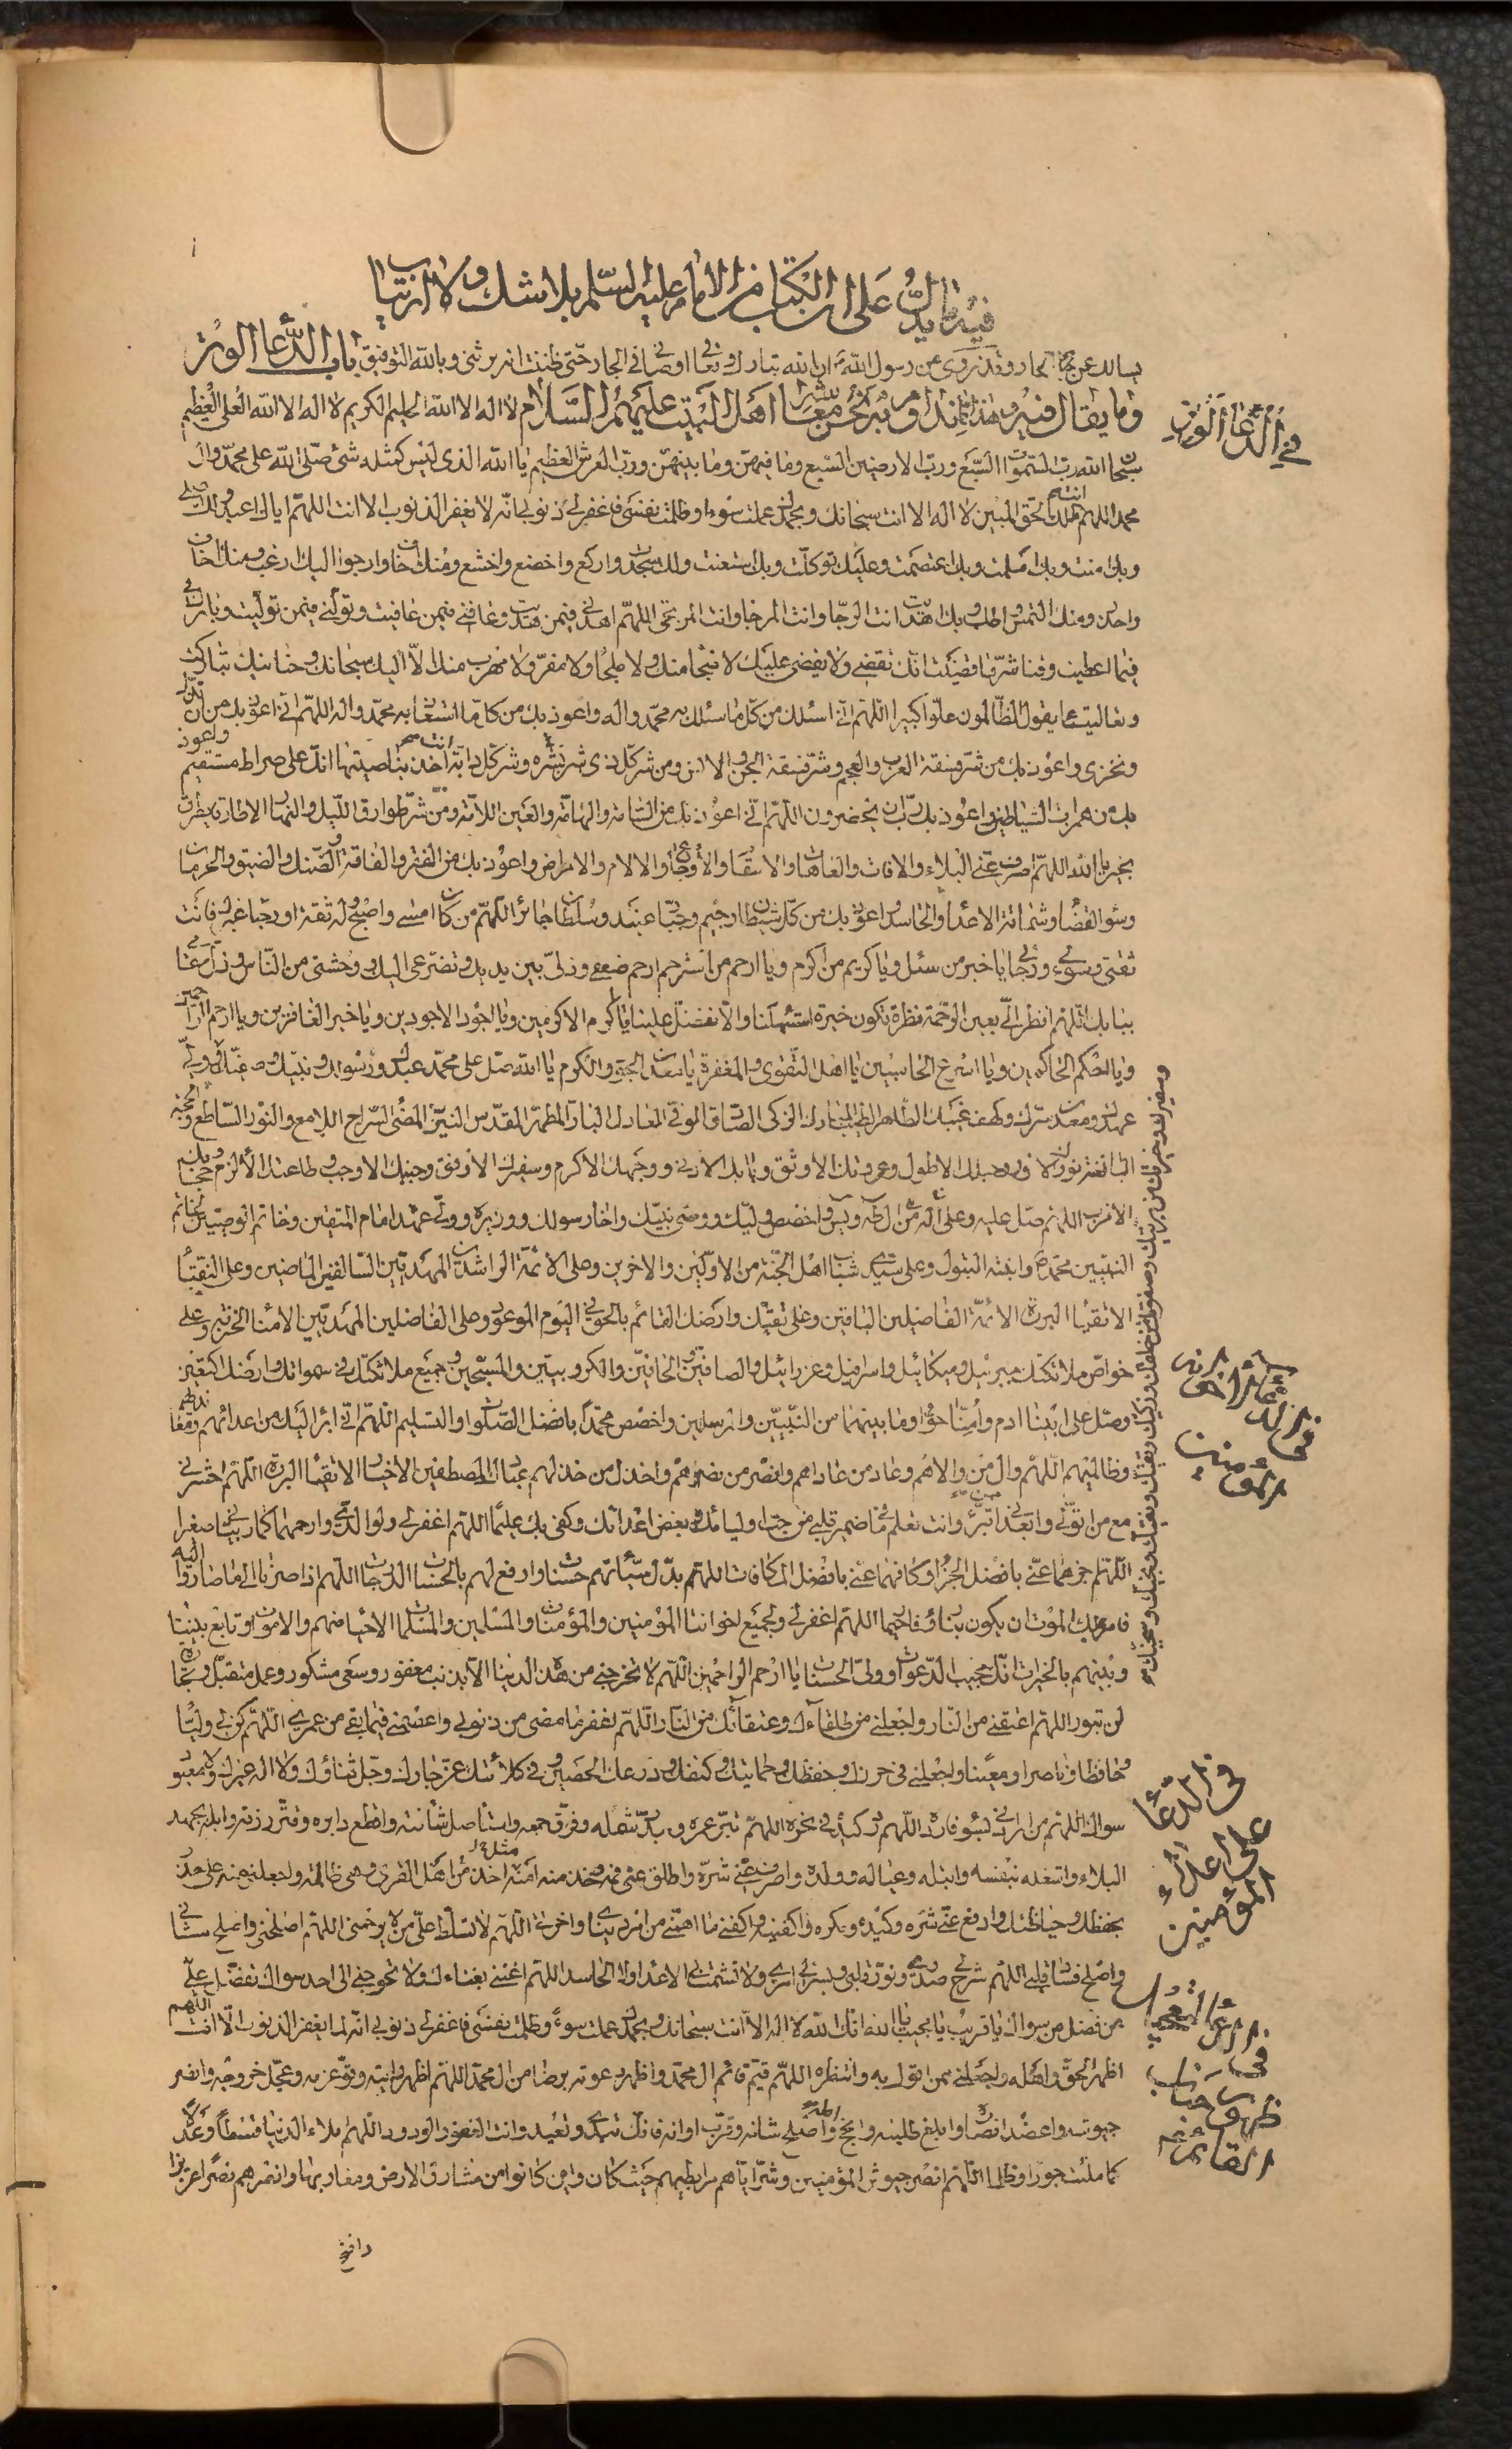 فيه ما يدل على ان الكتاب من الامام عليه السلم بلا شك ولا ارتياب
يسالك عن الجار وقد روى عن رسول الله ص ان الله تبارك وتعالى اوصانى فى الجار حتى ظننت انه يرثنى وبالله التوفيق باب الدعا فى الوتر
وما يقال فيه وهذا مما نداوم به نحن معاشر اهل البيت عليهم السلام لا اله الا الله الحليم الكريم لا اله الا الله العلى العظيم
فى الدعاء الوتر
سبحان الله رب السموات السبع ورب الارضين السبع وما فيهن وما بينهن ورب العرش العظيم يا الله الذى ليس كمثله شئ صلى الله على محمد وآل
محمد اللهم انت الملك الحق المبين لا اله الا انت سبحانك وبحمدك عملت سوءا وظلمت نفسى فاغفر لى ذنوبى انه لا يغفر الذنوب الا انت اللهم اياك اعبد ولك اصلى
وبك امنت ولك اسلمت وبك اعتصمت وعليك توكلت وبك استعنت ولك اسجد واركع واخضع واخشع ومنك اخاف وارجو واليك ارغب ومنك اخاف
واحذر ومنك التمس واطلب وبك اهتديت انت الرجا وانت المرجا وانت المرتجى اللهم اهدنى فيمن هديت وعافنى فيمن عافيت وتولنى فيمن توليت وبارك لى
فيما اعطيت وقنا شر ما قضيت انك تقضى ولا يقضى عليك لا منجا منك ولا ملجا ولا مفر ولا مهرب منك الا اليك سبحانك وحنانيك تباركت
وتعاليت عما يقول الظالمون علوا كبيرا اللهم انى اسئلك من كل ما سئلك به محمد واله واعوذ بك من كل ما استعاذ به محمد واله اللهم انى اعوذ بك من ان نذل
ونخزى واعوذ بك من شر فسقة العرب والعجم وشر فسقة الجن والانس ومن شر كل ذى شر وشر كل دابة انت اخذ بناصيتها انك على صراط مستقيم واعوذ
بك من همزات الشياطين واعوذ بك رب ان يحضرون اللهم انى اعوذ بك من السامة والهامة والعين اللامة ومن شر طوارق الليل والنهار الا طارقا يطرق
بخير يا الله اللهم اصرف عنى البلاء والافات والعاهات والاسقام والاوجاع والالام والامراض واعوذ بك من الفقر والفاقة والضنك والضيق والحرمان
وسوء القضاء وشماتة الاعداء والحاسد واعوذ بك من كل شيطان رجيم وجبار عنيد وسلطان جائر اللهم من كان امسى واصبح وله ثقة او رجا غيرك فانت
ثقتى وسؤلى ورجائى يا خير من سئل ويا كريم من اكرم ويا ارحم من استرحم ارحم ضعفى وذلى بين يديك وتضرعى اليك ووحشتى من الناس وذل مقامى
ببابك اللهم انظر الى بعين الرحمة نظرة تكون خيرة استهلنا والا تفضل علينا يا اكرم الاكرمين ويا اجود الاجودين ويا خير الغافرين ويا ارحم الراحمين
ويا احكم الحاكمين ويا اسرع الحاسبين يا اهل التقوى والمغفرة يا معدن الجود والكرم يا الله صل على محمد عبدك ورسولك ونبيك وصفيك
عهدك ومعدن سرك وكهف غيبك الطاهر الطيب المبارك الزكى الصادق الوفى العادل البار المطهر المقدس النير المضئ السراج اللامع والنور الساطع والحجة
البالغة نورك الانور وحبلك الاطول وعروتك الاوثق وبابك الادنى ووجهك الاكرم وسفيرك الاوفق وجنبك الاوجب وطاعتك الالزم وحجابك
الاقرب اللهم صل عليه وعلى آله من آل طه ويس واخصص وليك ووصى نبيك واخا رسولك ووزيره وولى عهده امام المتقين وخاتم الوصيين لخاتم
النبيين محمد ص وابنته البتول وعلى سيدى شباب اهل الجنة من الاولين والاخرين وعلى الائمة الراشدين المهديين السالفين الماضين وعلى النقباء
الاتقياء البررة الائمة الفاضلين الباقين وعلى بقيتك فى ارضك القائم بالحق فى اليوم الموعود وعلى الفاضلين المهديين الامناء الخزنة وعلى
خواص ملائكتك جبرئيل وميكائيل واسرافيل وعزرائيل والصافين والحافين والكروبيين والمسبحين وجميع ملائكتك فى سمواتك وارضك اكتعين
وصل على ابينا ادم وامنا حوا وما بينهما من النبيين والمرسلين واخصص محمدا بافضل الصلوة والتسليم اللهم انى ابرأ اليك من اعدائهم
وظالميهم اللهم وال من والاهم وعاد من عاداهم وانصر من نصرهم واخذل من خذلهم عبادك المصطفين الاخيار الاتقياء البررة اللهم احشرنى
مع من اتولى وابعدنى ممن اتبرء وانت تعلم ما فى ضمير قلبى من حب اوليائك وبغض اعدائك وكفى بك عليما اللهم اغفر لى ولوالدى وارحمهما كما ربيانى صغيرا
اللهم اجزهما عنى بافضل الجزاء وكافهما عنى بافضل المكافات اللهم بدل سيئاتهم حسنات وارفع لهم بالحسنات الدرجات اللهم اذا صرنا الى ما صاروا اليه
فامر ملك الموت ان يكون بنا رؤفا رحيما اللهم اغفر لى ولجميع اخواننا المؤمنين والمؤمنات والمسلمين والمسلمات الاحياء منهم والاموات وتابع بيننا
وبينهم بالخيرات انك مجيب الدعوات وولى الحسنات يا ارحم الراحمين اللهم لا تخرجنى من هذه الدنيا الا بذنب مغفور وسعى مشكور وعمل متقبل وتجارة
لن تبور اللهم اعتقنى من النار واجعلنى من طلقائك وعتقائك من النار اللهم اغفر لى ما مضى من ذنوبى واعصمنى فيما بقى من عمرى اللهم كن لى وليا
وحافظا وناصرا ومعينا واجعلنى فى حرزك وحفظك وحمايتك وكنفك ودرعك الحصين وفى كلائتك عز جارك وجل ثناؤك ولا اله غيرك ولا معبود
فى الدعاء على اعداء المؤمنين
سواك اللهم من ارادنى بسوء فارده اللهم اردد كيده فى نحره اللهم بتر عمره وبدد شمله وفرق جمعه واستاصل شافته واقطع دابره وقتر رزقه وابله بجهد
البلاء واشغله بنفسه وابتله وعياله وولده واصرف عنى شره واطبق عنى فمه وخذ منه امنه مثل من اخذ من اهل القرى وهى ظالمة واجعلنى منه على حذر
بحفظك وحياطتك وادفع عنى شره وكيده ومكره واكفنيه واكفنى ما اهمنى من امر دنياى واخرتى اللهم لا تسلط على من لا يرحمنى اللهم اصلحنى واصلح شانى
واصلح فساد قلبى اللهم اشرح لى صدرى ونور قلبى ويسر لى امرى ولا تشمت بى الاعداء ولا الحاسد اللهم اغننى بغناءك ولا تحوجنى الى احد سواك تفضل على
من فضل من سواك يا قريب يا مجيب يا الله انك الله لا اله الا انت سبحانك وبحمدك عملت سوءً وظلمت نفسى فاغفر لى ذنوبى انه لا يغفر الذنوب الا انت اللهم
اظهر الحق واهله واجعلنى ممن اقول به وانتظره اللهم قيم قائم ال محمد واظهر دعوته برضا من ال محمد اللهم اظهر رايته وقو عزمه وعجل خروجه وانصر
جيوشه واعضد انصاره وابلغ طلبته وانجح امله واصلح شانه وقرب اوانه فانك تبدئ وتعيد وانت الغفور الودود اللهم املاء الدنيا قسطاً وعدلاً
كما ملئت جورا وظلما اللهم انصر جيوش المؤمنين وسراياهم مرابطيهم حيث كان واين كانوا من مشارق الارض ومغاربها وانصرهم نصرا عزيزا
وافتح